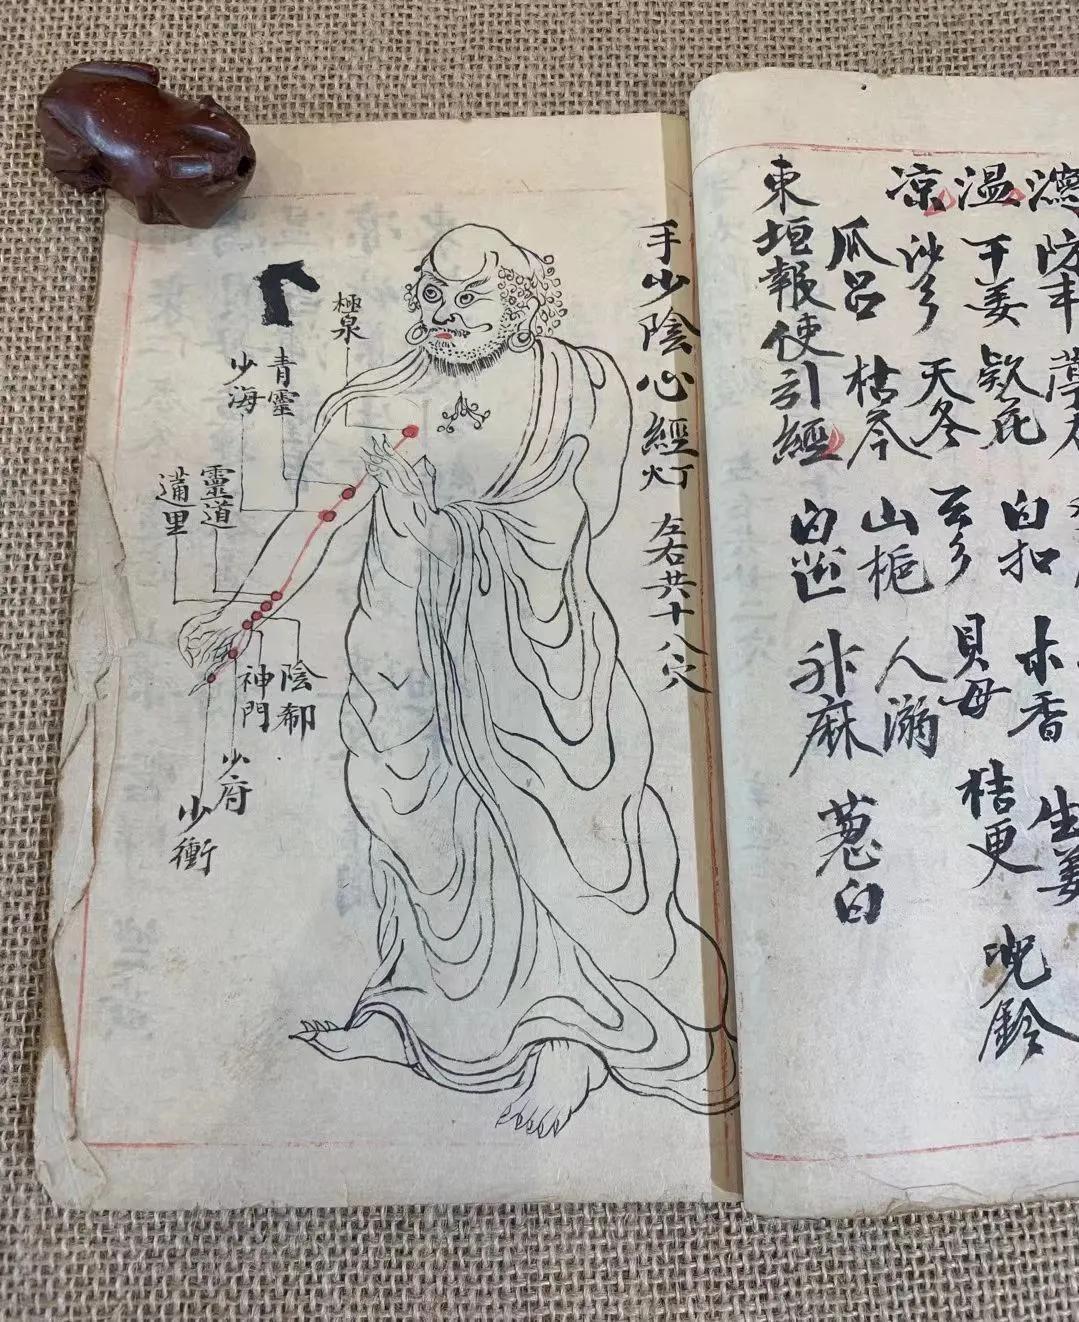 温 干姜 欵花 白扣 木香 生姜
凉 沙参 天冬 貝母 桔更 兜鈴
瓜呂 枯芩 山梔 人溺
東垣報使引經 白芷 升麻 葱白
手少陰心經灯 左右共十八穴
極泉
青靈
少海
靈道
通里
陰郄
神門
少府
少衝